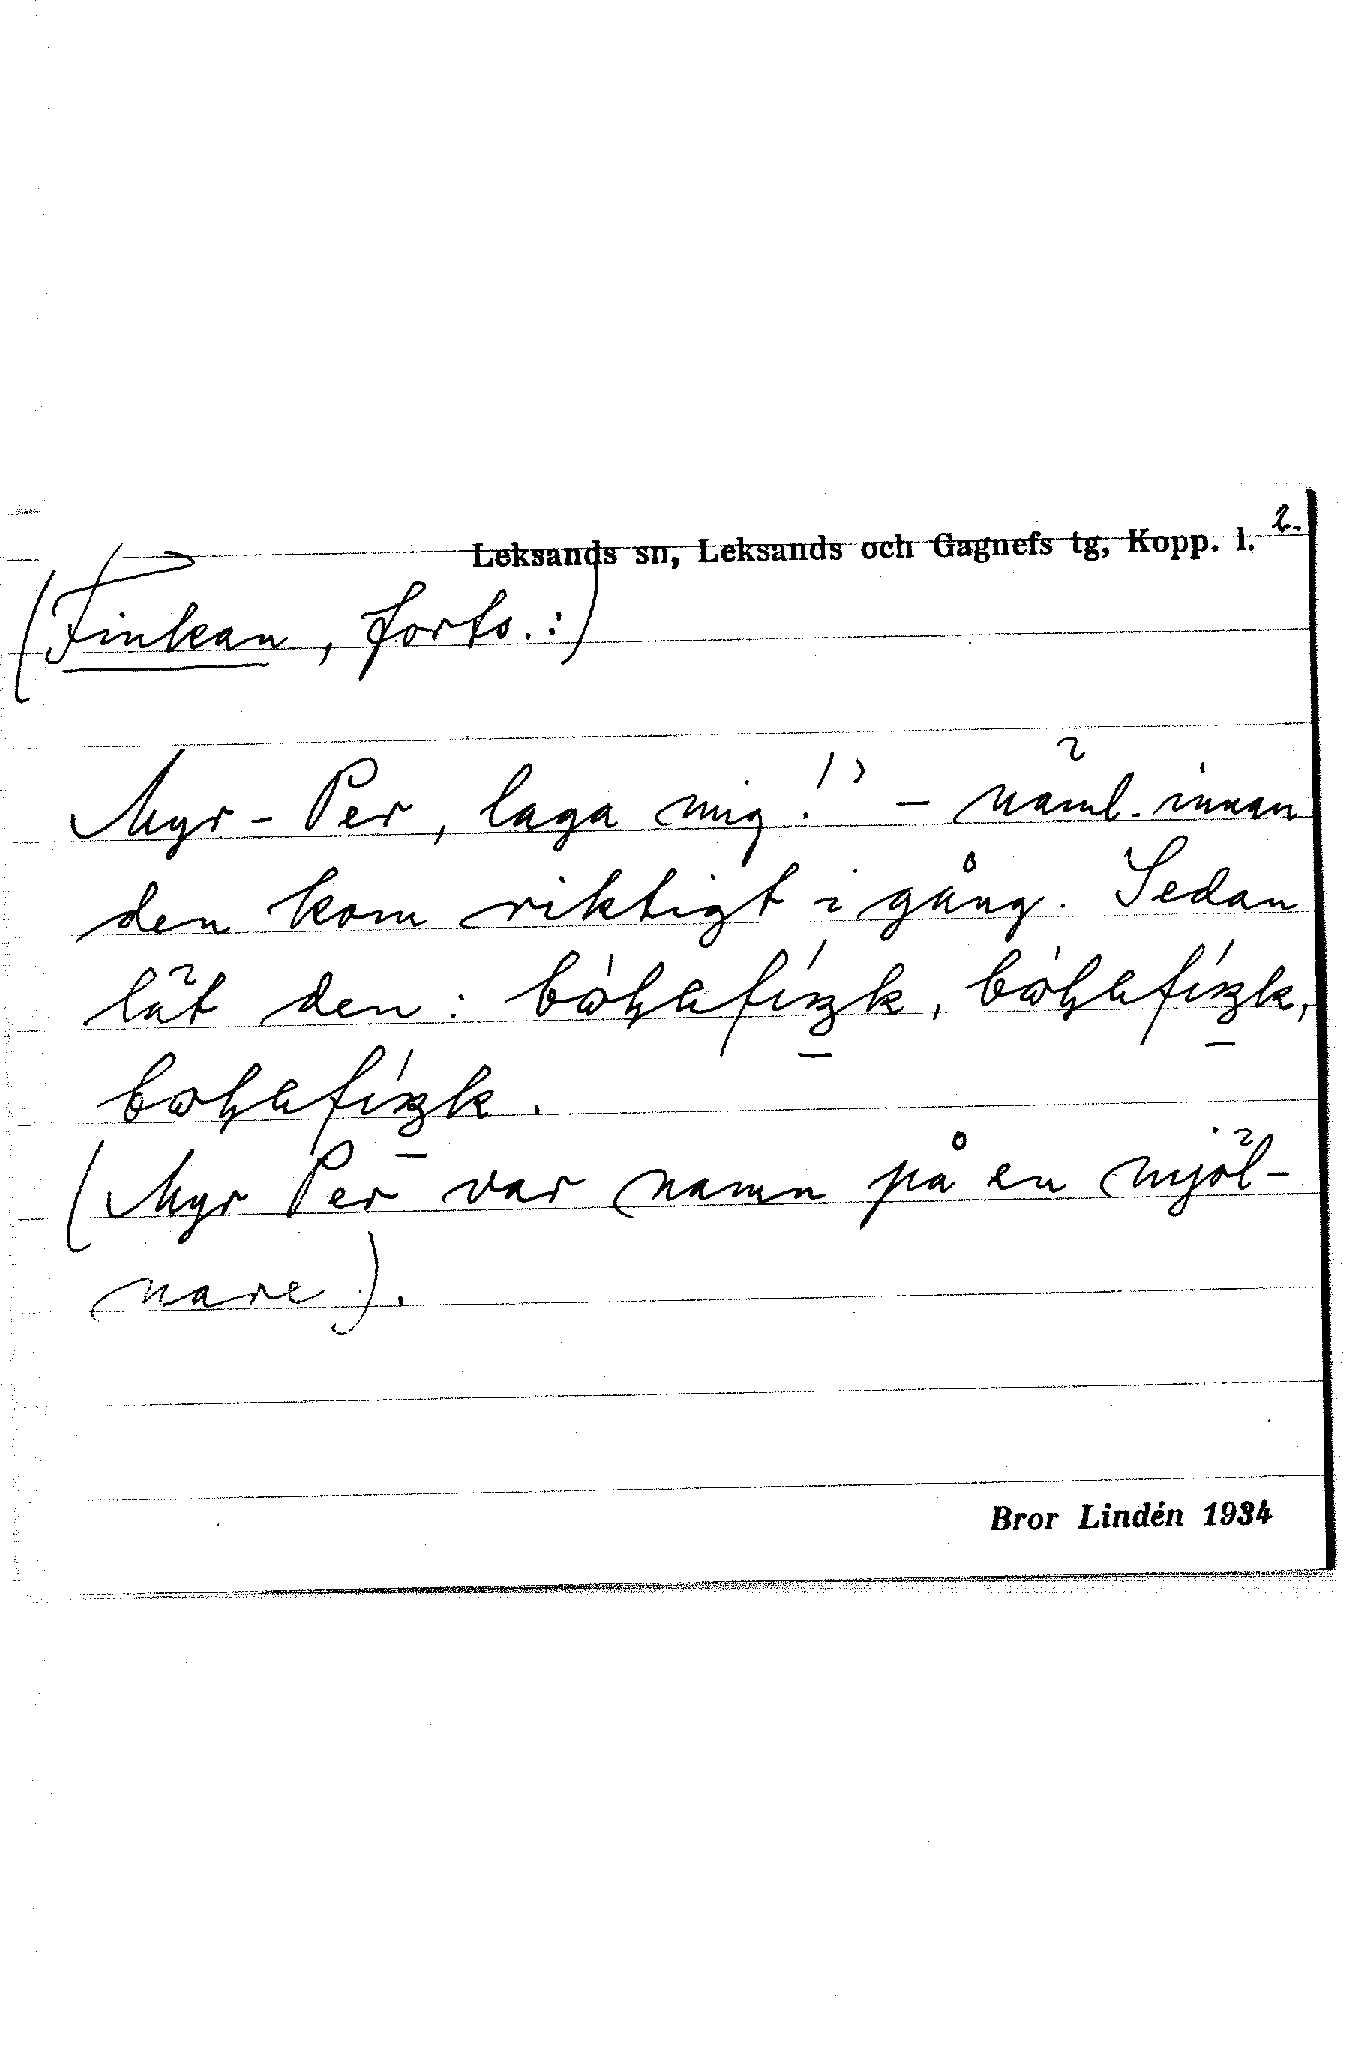 Leksands sn, Leksands och Gagnefs tg, Kopp. l. 2.
(Finkan, forts.:)
Myr-Per, laga mig!" – näml. innan
den kom riktigt i gång. Sedan
lät den:
(Myr Per var namn på en mjöl-
nare).
Bror Lindén 1934